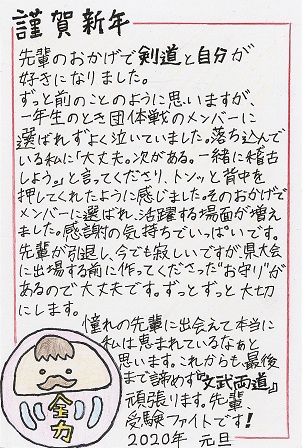 謹賀新年
先輩のおかげで剣道と自分が
好きになりました。
ずっと前のことのように思いますが、
一年生のとき団体戦のメンバーに
選ばれずよく泣いていました。落ち込んで
いる私に「大丈夫。次がある。一緒に稽古
しよう。」と言ってくださり、トンッと背中を
押してくれたように感じました。そのおかげで
メンバーに選ばれ、活躍する場面が増え
ました。感謝の気持ちでいっぱいです。
先輩が引退し、今でも寂しいですが、県大会
に出場する前に作ってくださった"お守り"が
あるので大丈夫です。ずっとずっと大切
にします。
憧れの先輩に出会えて本当に
私は恵まれているなぁと
思います。これからも最後
まで諦めず『文武両道』
頑張ります。先輩、
受験ファイトです!
2020年 元旦
全力